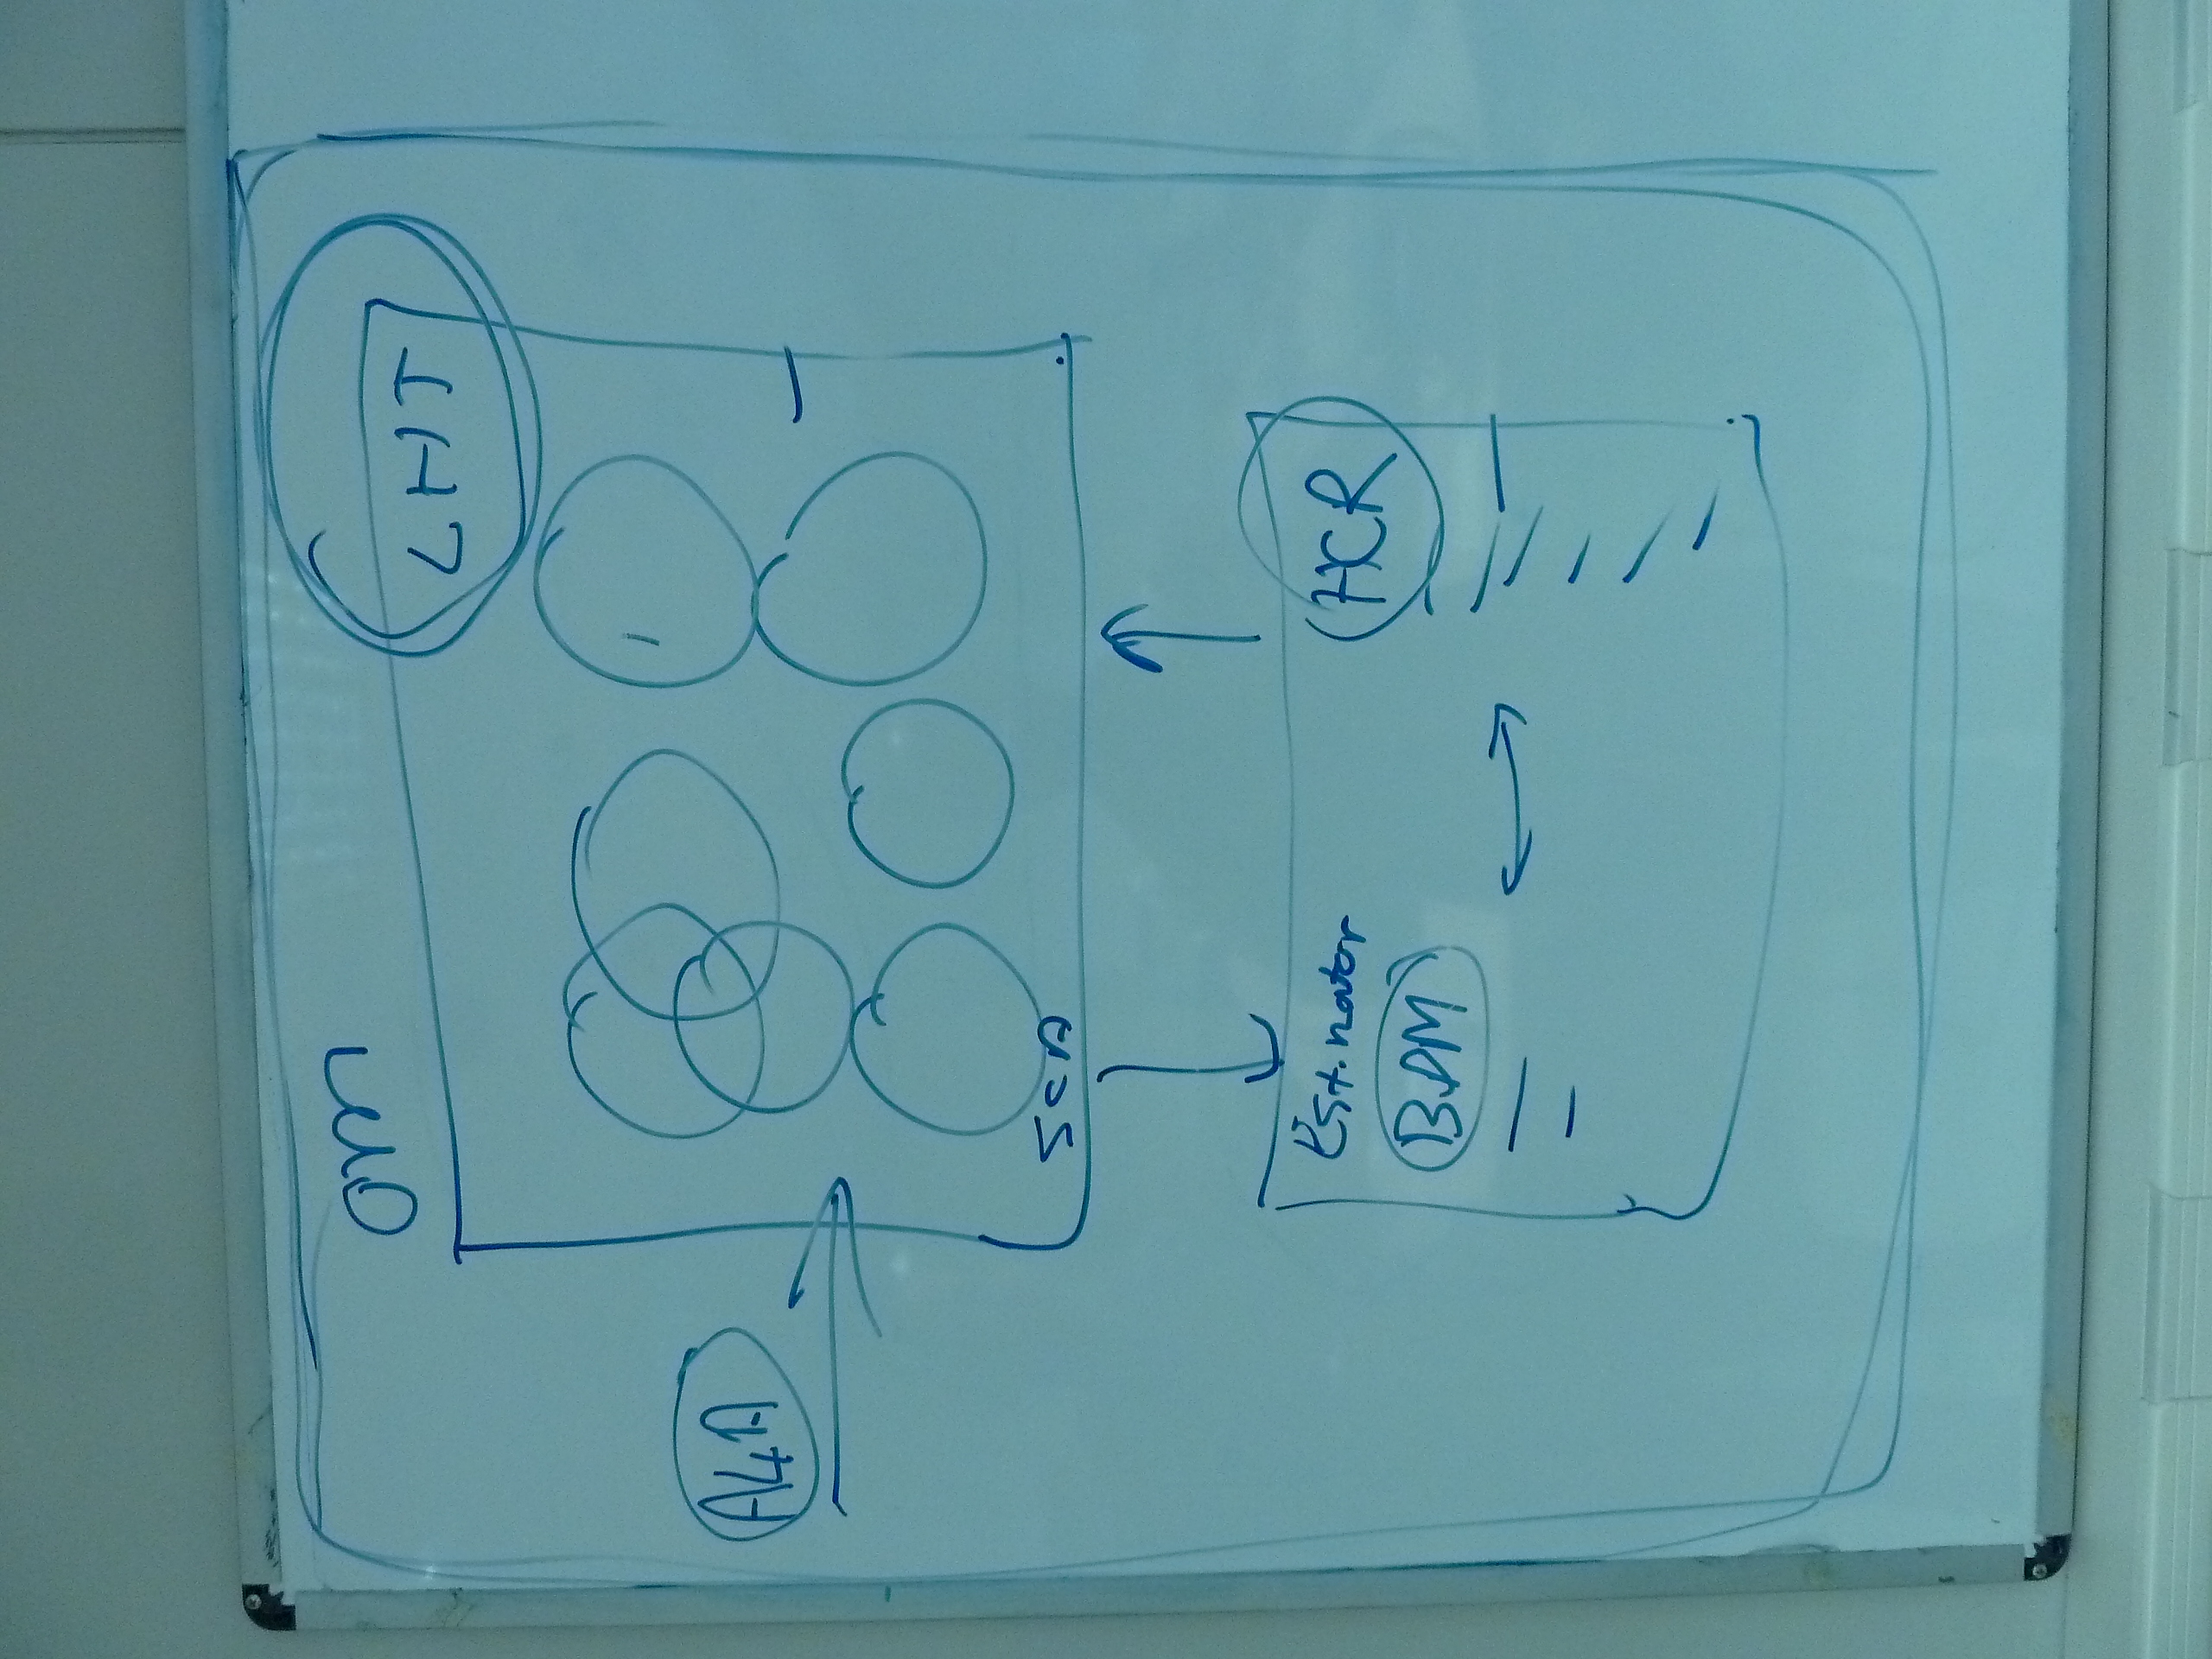 om
LHT
A4A
SCA
Estimator
BPM
HCR